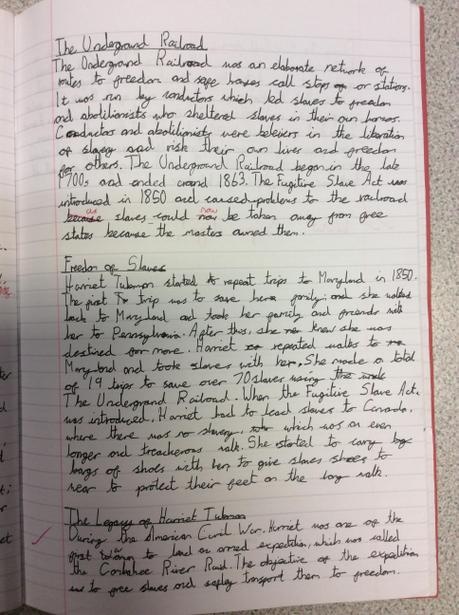 The Underground Railroad
The Underground Railroad was an elaborate network of
routes to freedom and safe houses call stops or stations.
It was run by conductors which led slaves to freedom
and abolitionists who sheltered slaves in their own homes.
Conductors and abolitionists were believers in the liberation
of slavery and risk their own lives and freedom
for others. The Underground Railroad began in the late
1700s and ended around 1863. The Fugitive Slave Act was
introduced in 1850 and caused problems to the railroad
because as slaves could now now be taken away from free
states because the masters owned them.
Freedom of Slaves
Harriet Tubman started to repeat trips to Maryland in 1850.
The first trip was to save her family and she walked
back to Maryland and took her family and friends with
her to Pennsylvania. After this, she knew she was
destined for more. Harriet repeated walks to
Maryland and took slaves with her. She made a total
of 19 trips to save over 70 slaves using the
The Underground Railroad. When the Fugitive Slave Act.
was introduced, Harriet had to lead slaves to Canada,
where there was no slavery, which was an even
longer and treacherous walk. She started to carry
bags of shoes with her to give slaves shoes to
wear to protect their feet on the long walk.
The Legacy of Harriet Tubman
During the American Civil War. Harriet was one of the
first to lead an armed expedition, which was called
the Combahee River Raid. The objective of the expedition
was to free slaves and safely transport them to freedom.